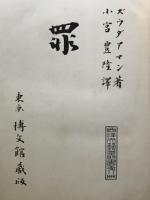 ズウダアマン著
小宮豊隆譯
罪
東京 博文館蔵版